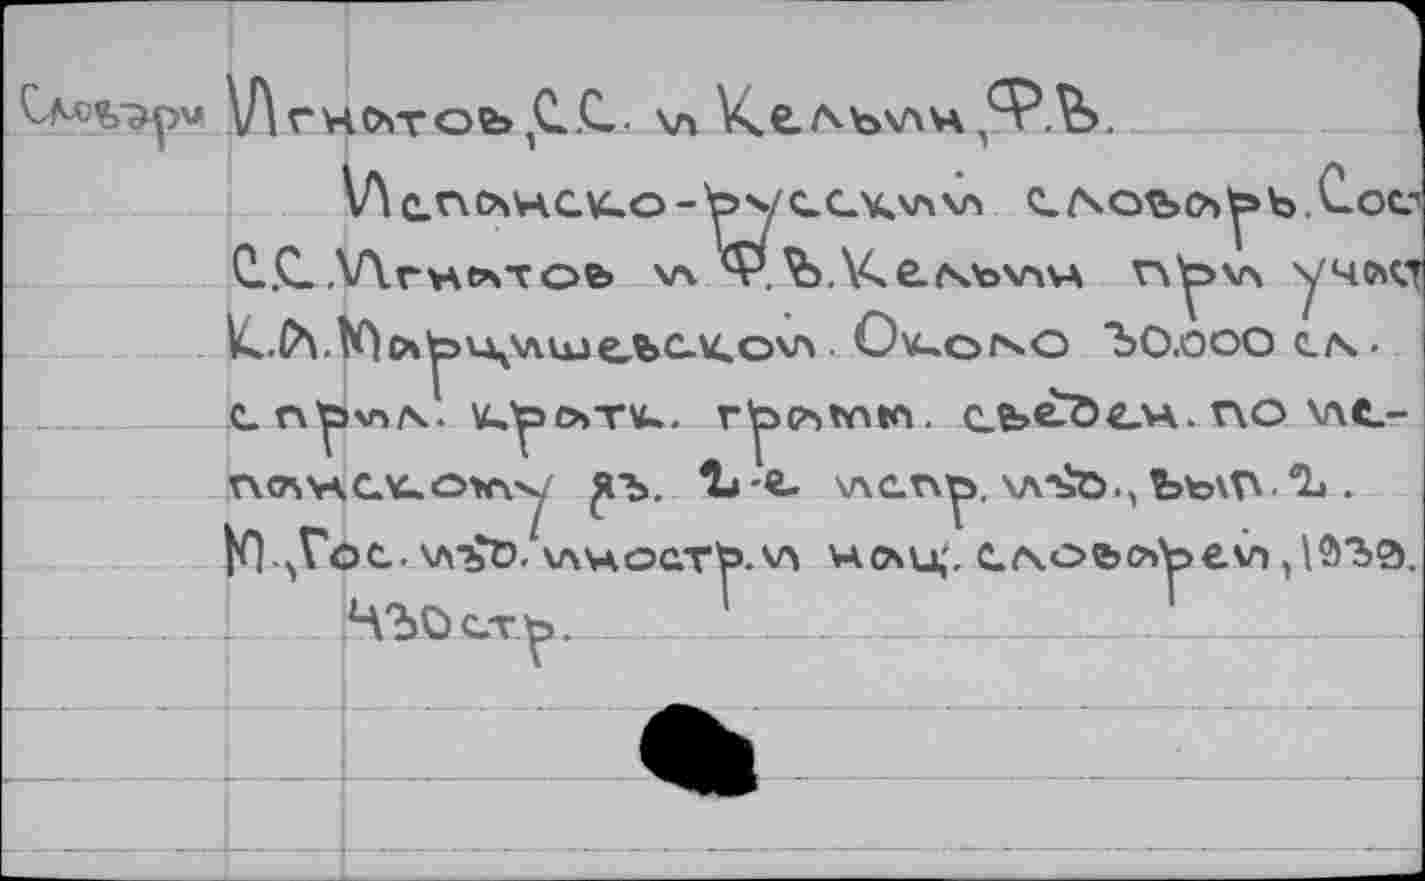 Словари Игнатов, С.С. и Кельин, Ф.В.
Испанско-русский словарь. Сост
С.С. Игнатов и Ф.В. Кельин при участ
К.А. Марцишевской. Около 30.000 сл.
с прил. кратк. грамм. сведен. по ис-
панскому яз. 2-е испр. изд., вып. 2.
М., Гос. изд. иностр. и нац. словарей, 1933.
430 стр.